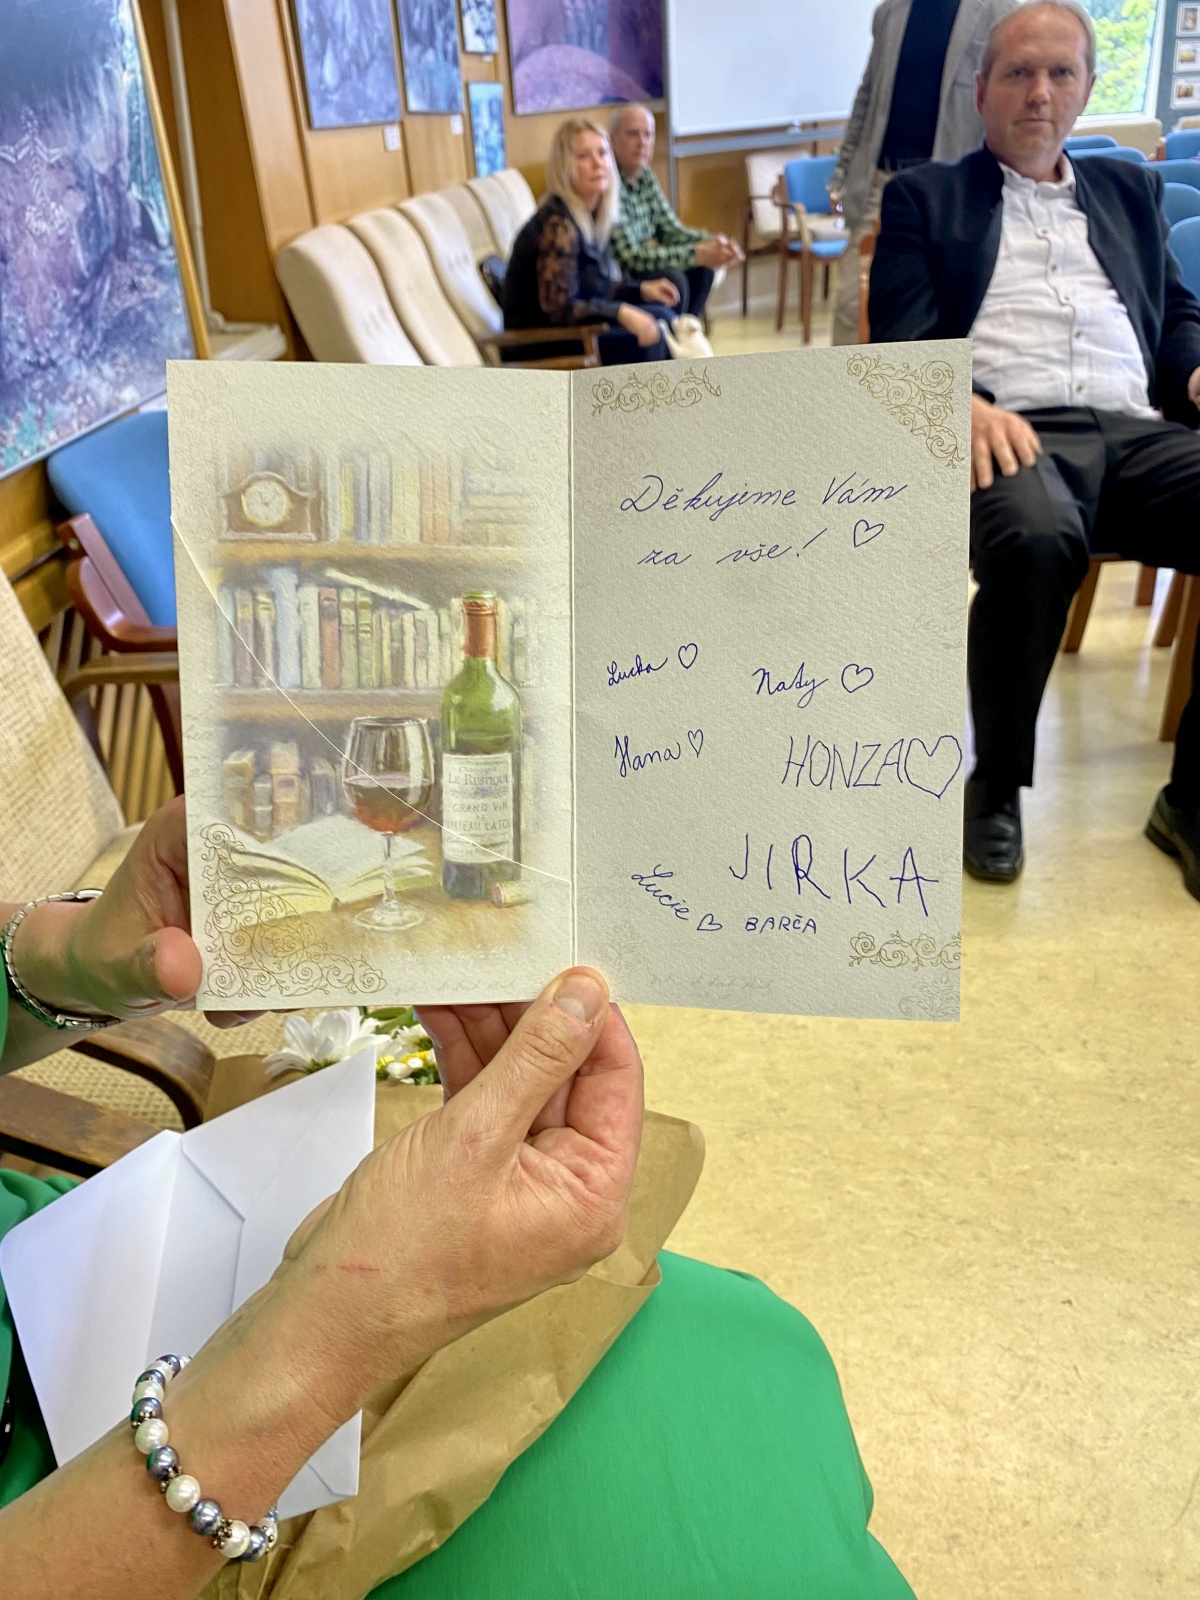 LE RUSTIQUE
GRAND VIN
Děkujeme Vám
za vše! ♡
Lucka ♡
Naty ♡
Hana ♡
HONZA ♡
JIRKA
Lucie ♡
BARČA